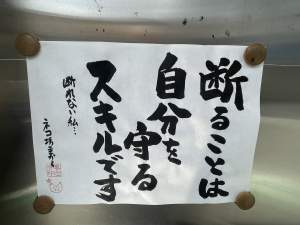 断ることは
自分を
守る
スキルです
断れない私…